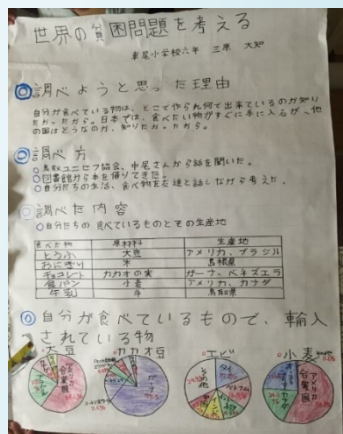 世界の貧困問題を考える
車尾小学校六年
調べようと思った理由
自分が食べている物は、どこで作られ何で出来ているのか知り
たかったから。日本では、食べたい物がすぐに手に入るが、他
の国はどうなのか、知りたかったから。
調べ方
○鳥取ユニセフ協会、中尾さんから話を聞いた。
○図書館から本を借りてきた。
○自分たちの生活、食べ物を友達と話しながら考えた。
調べた内容
○自分たちの食べているものとその生産地
食べた物 原材料 生産地
とうふ 大豆 アメリカ、ブラジル
おにぎり 米 鳥取県
チョコレート カカオの実 ガーナ、ベネズエラ
食パン 小麦 アメリカ、カナダ
牛乳 牛 鳥取県
自分が食べているもので、輸入
されている物
大豆 カカオ豆 エビ 小麦
アメリカ合衆国
ガーナ
タイ
その他
アメリカ合衆国
カナダ